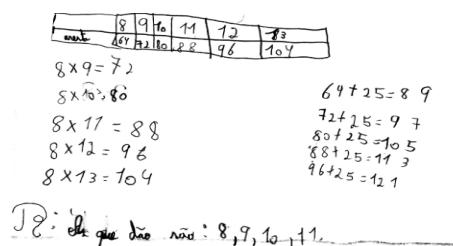 8 9 10 11 12 13
64 72 80 88 96 104
8x9=72
8x10=80
8x11=88
8x12=96
8x13=104
64+25=89
72+25=97
80+25=105
88+25=113
96+25=121
R: que dão são: 8,9,10,11.